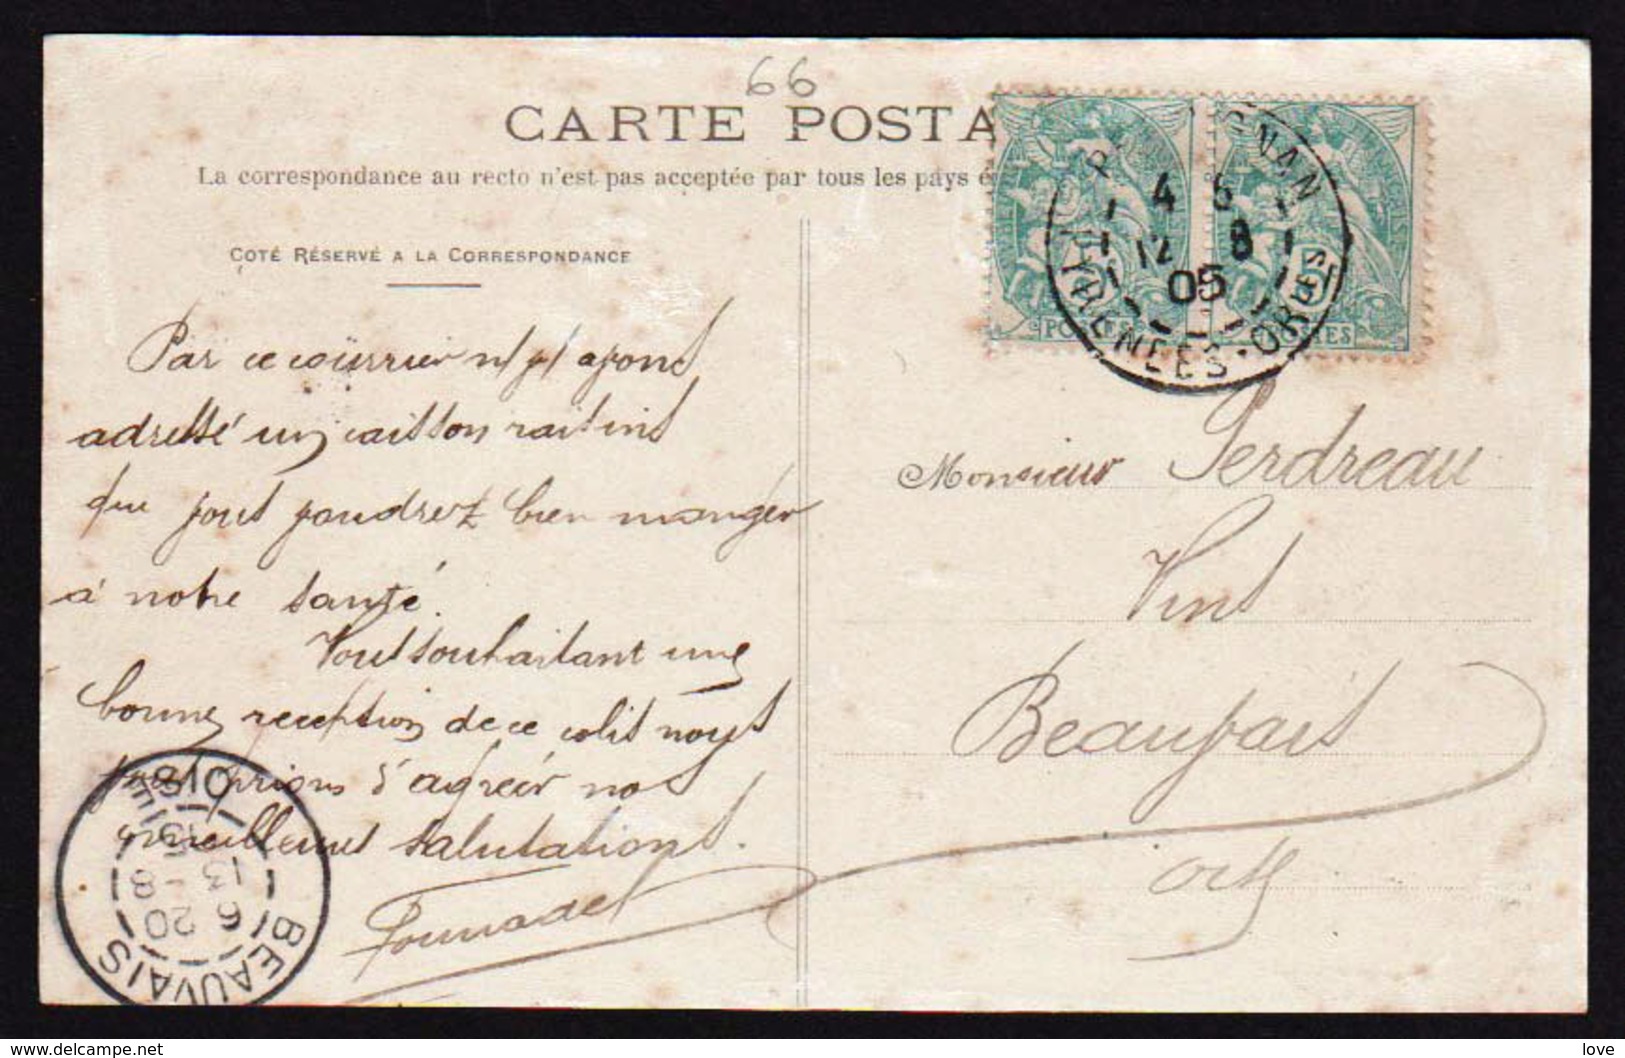 66
CARTE POSTA
La correspondance au recto n'est pas acceptée par tous les pays é
COTÉ RÉSERVÉ A LA CORRESPONDANCE
Par ce courrier n/ v/ avons
adressé un caisson raisins
que vous voudrez bien manger
à notre santé.
Vous souhaitant une
bonne reception de ce colis nous
vous prions d'agréér nos
meilleures salutations.
GNAN
4 5
12 8
05
PYRENÉES-ORLES
POSTES
Monsieur Perdreau
Vins
Beauvais
Oise
BEAUVAIS
OISE
13 6
8 - 20
05
delcampe.net
love